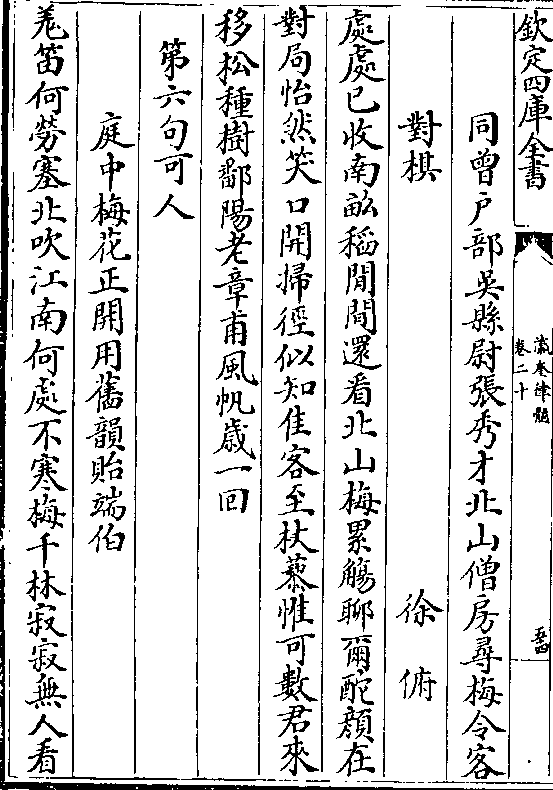 欽定四庫全書
瀛奎律髓
卷二十
同曾户部吳縣尉張秀才北山僧房尋梅令客
對棋 徐俯
處處已收南畝稻閒閒還看北山梅累觴聊爾酡顔在
對局怡然笑口開掃徑似知佳客至杖藜惟可數君來
移松種樹鄱陽老章甫風帆歳一回
第六句可人
庭中梅花正開用舊韻貽端伯
羌笛何勞塞北吹江南何處不寒梅千林寂寂無人看